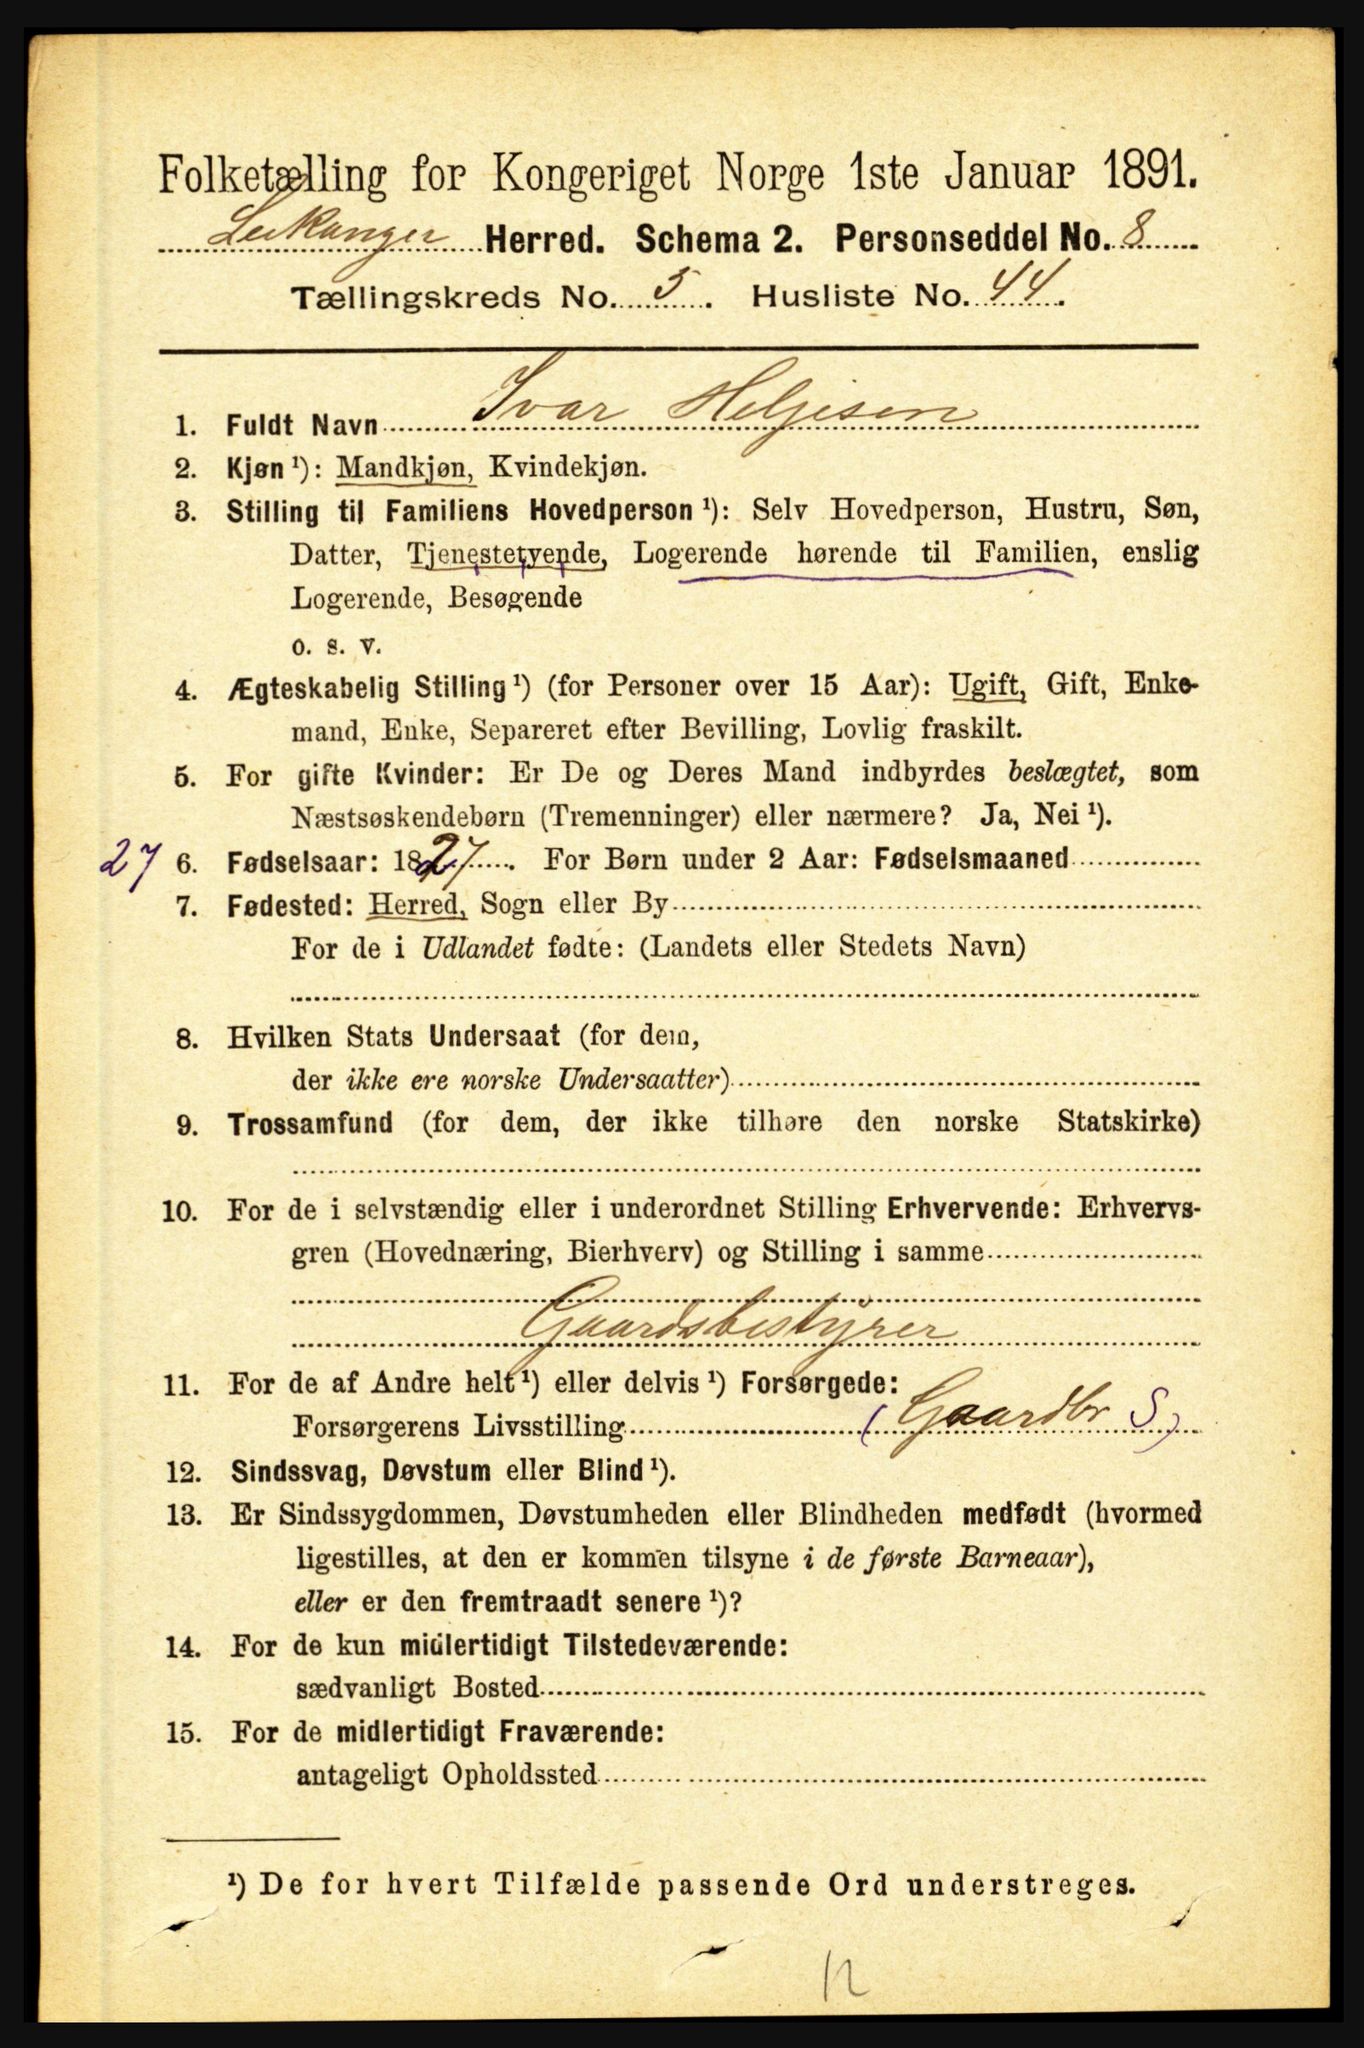 Folketælling for Kongeriget Norge 1ste Januar 1891.
Leikanger Herred. Schema 2. Personseddel No. 8
Tællingskreds No. 5. Husliste No. 44.
1. Fuldt Navn Ivar Helgesen
2. Kjøn¹): Mandkjøn, Kvindekjøn.
3. Stilling til Familiens Hovedperson¹): Selv Hovedperson, Hustru, Søn,
Datter, Tjenestetyende, Logerende hørende til Familien, enslig
Logerende, Besøgende
o. s. v.
4. Ægteskabelig Stilling¹) (for Personer over 15 Aar): Ugift, Gift, Enke-
mand, Enke, Separeret efter Bevilling, Lovlig fraskilt.
5. For gifte Kvinder: Er De og Deres Mand indbyrdes beslægtet, som
Næstsøskendebørn (Tremenninger) eller nærmere? Ja, Nei¹).
27 6. Fødselsaar: 1827. For Børn under 2 Aar: Fødselsmaaned
7. Fødested: Herred, Sogn eller By
For de i Udlandet fødte: (Landets eller Stedets Navn)
8. Hvilken Stats Undersaat (for dem,
der ikke ere norske Undersaatter)
9. Trossamfund (for dem, der ikke tilhøre den norske Statskirke)
10. For de i selvstændig eller i underordnet Stilling Erhvervende: Erhvervs-
gren (Hovednæring, Bierhverv) og Stilling i samme
Gaardsbestyrer
11. For de af Andre helt¹) eller delvis¹) Forsørgede:
Forsørgerens Livsstilling (Gaardbr S)
12. Sindssvag, Døvstum eller Blind¹).
13. Er Sindssygdommen, Døvstumheden eller Blindheden medfødt (hvormed
ligestilles, at den er kommen tilsyne i de første Barneaar),
eller er den fremtraadt senere¹)?
14. For de kun midlertidigt Tilstedeværende:
sædvanligt Bosted
15. For de midlertidigt Fraværende:
antageligt Opholdssted
¹) De for hvert Tilfælde passende Ord understreges.
12